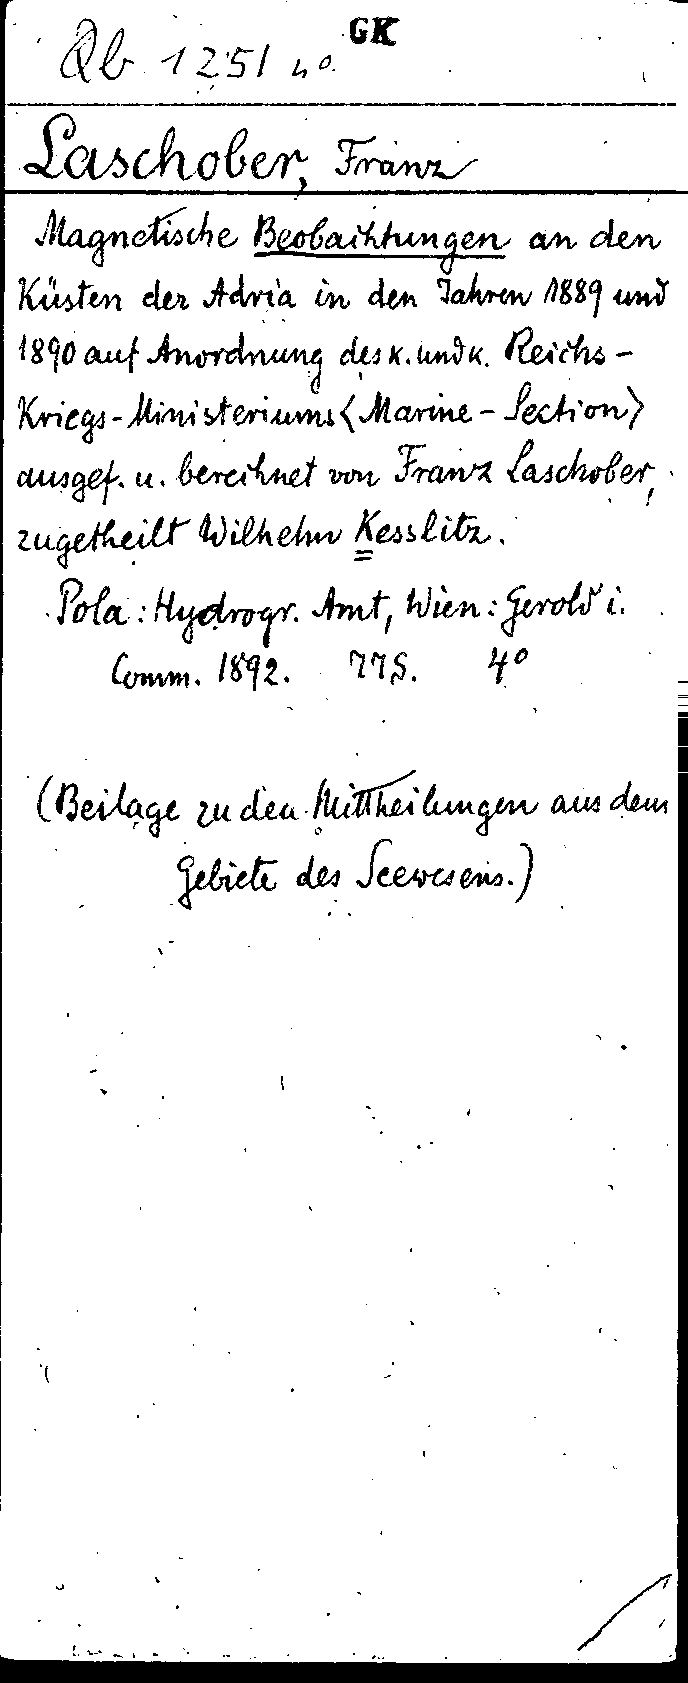 GK
Qb 1251 4°.
Laschober, Franz
Magnetische Beobachtungen an den
Küsten der Adria in den Jahren 1889 und
1890 auf Anordnung des k. und k. Reichs-
Kriegs-Ministeriums <Marine-Section>
ausgef. u. berechnet von Franz Laschober,
zugetheilt Wilhelm Kesslitz.
Pola: Hydrogr. Amt, Wien: Gerold i.
Comm. 1892. 77S. 4°
(Beilage zu den Mittheilungen aus dem
Gebiete des Seewesens.)